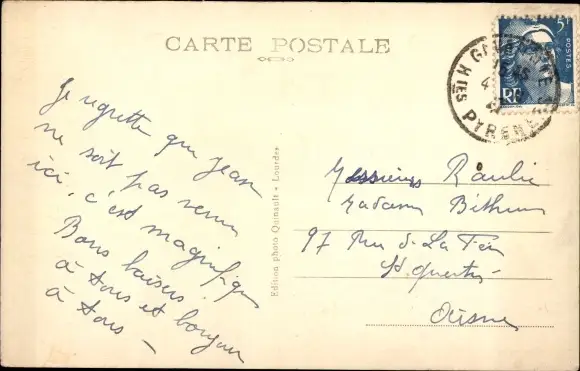 CARTE POSTALE
5F
POSTES
RF
GAVARNIE
Htes PYRENEES
Je regrette que Jean
ne soit pas venu
ici, c'est magnifique
Bons baisers
à tous et bonjour
à tous -
Edition photo Quinault - Lourdes
Messieurs Raulie
Madame Béthune
97 Rue de La Fère
St Quentin
Aisne